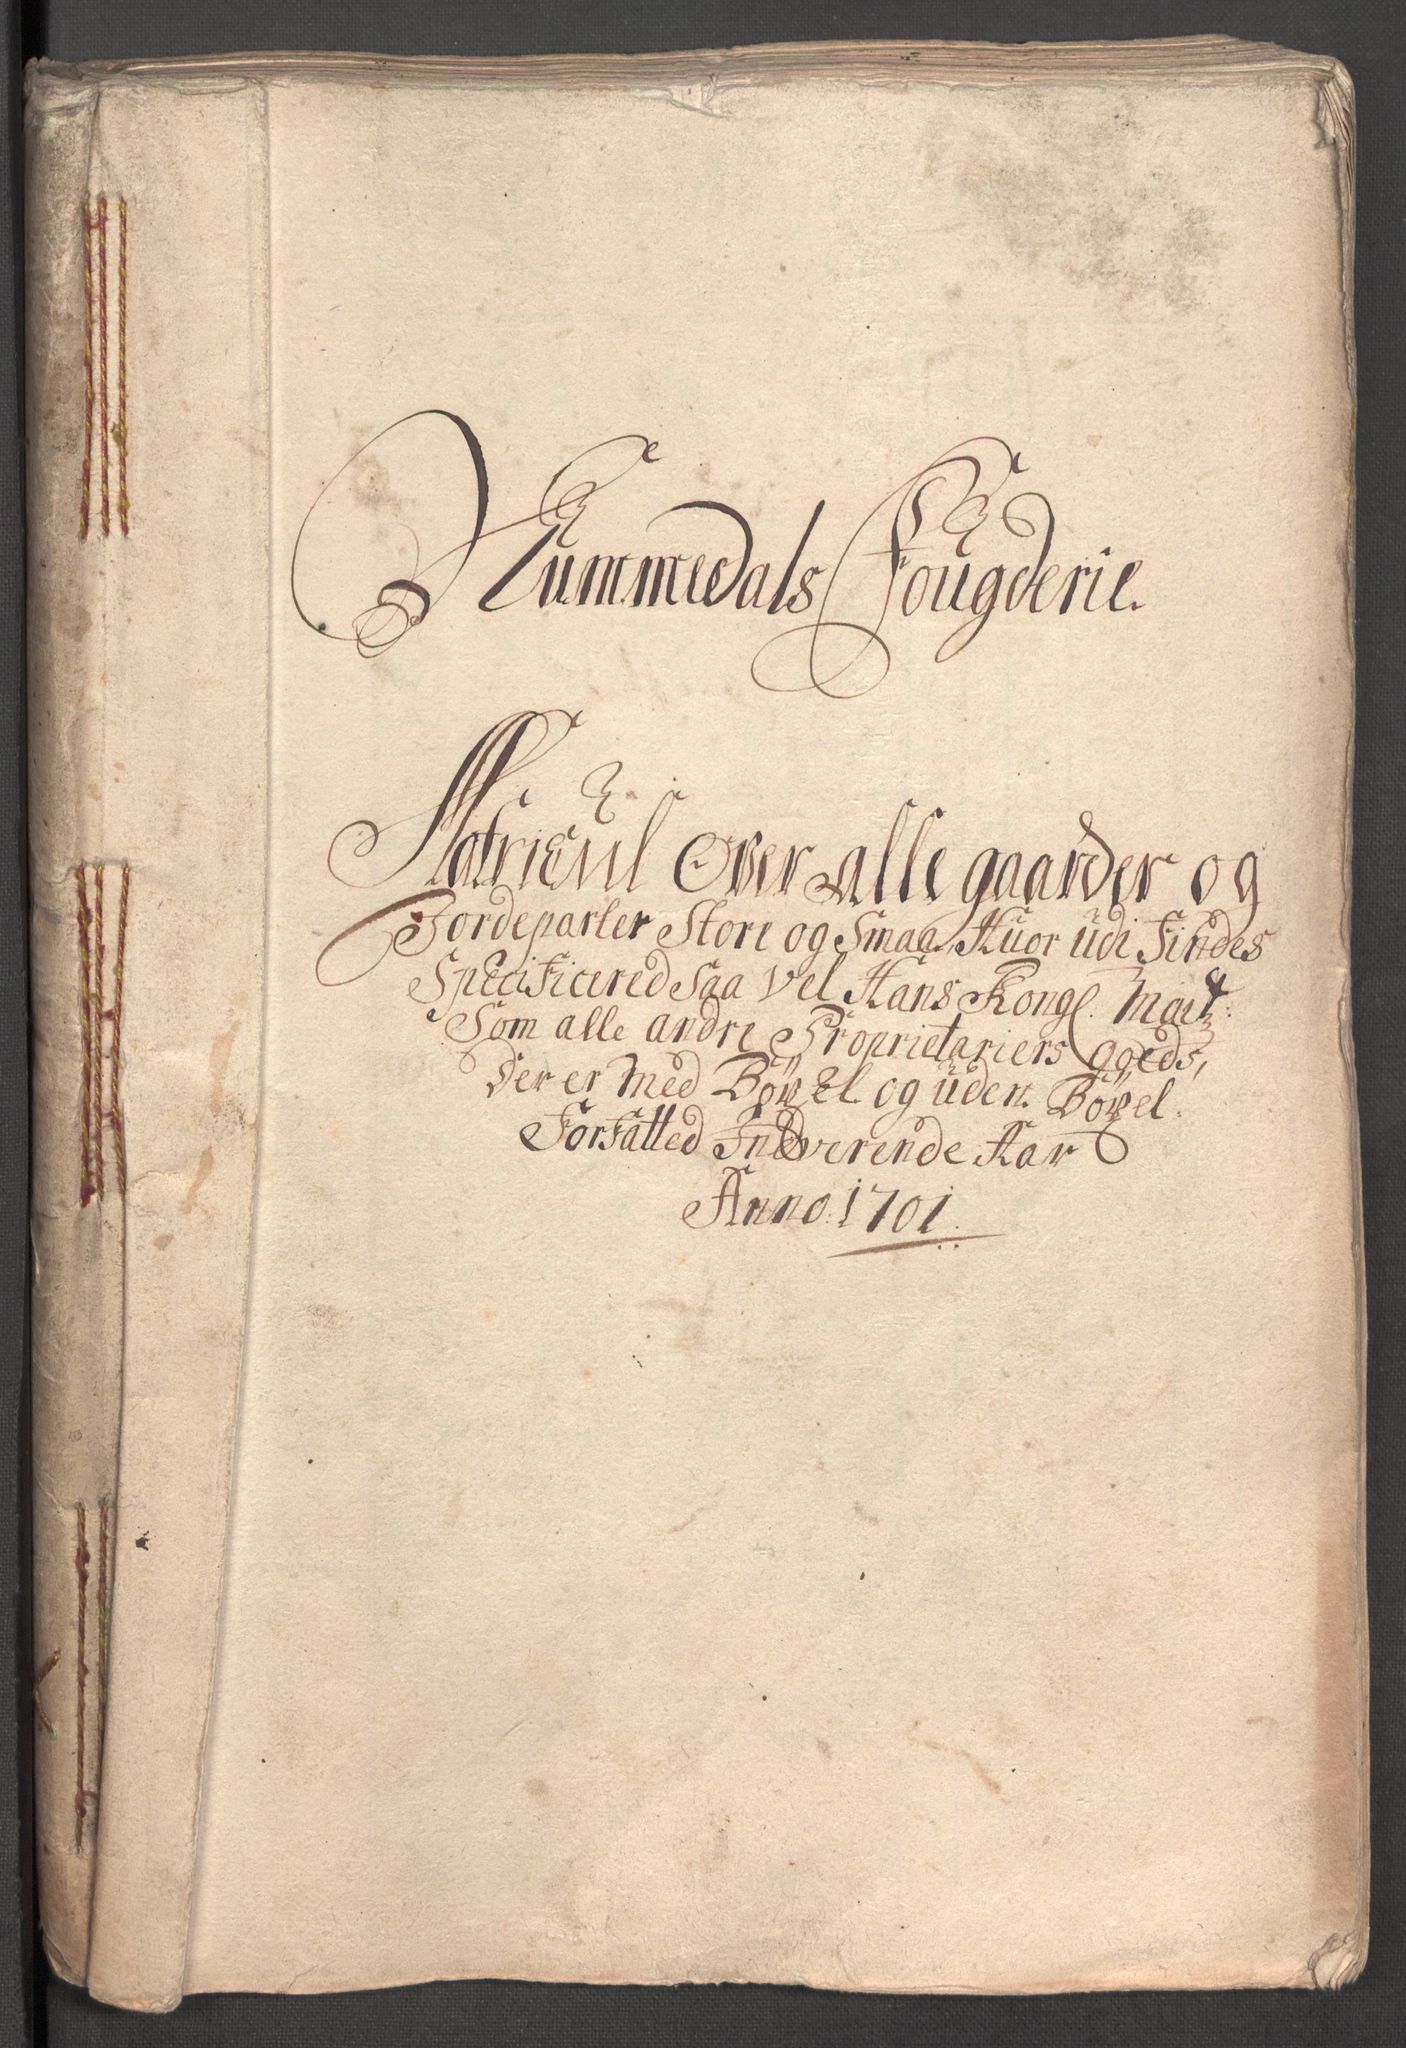 Nummedals Fougderie.
Matricul Over alle gaarder og
Jordeparter Store og Smaa Huor udi Findes
Specificered Saa Vel Hans Kongl. Maÿt:
Som alle andre Proprietariers goeds,
Der er Med Böxel og uden Böxel.
Forfatted Indverende Aar
Anno. 1701.